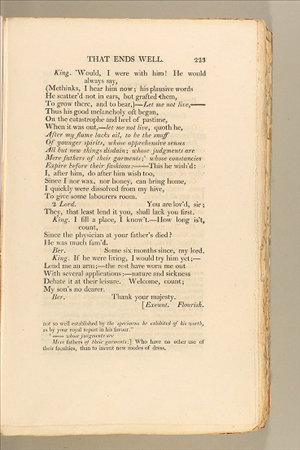 THAT ENDS WELL. 223
King. 'Would, I were with him! He would
always say,
(Methinks, I hear him now; his plausive words
He scatter'd not in ears, but grafted them,
To grow there, and to bear,)—Let me not live,—
Thus his good melancholy oft began,
On the catastrophe and heel of pastime,
When it was out,—let me not live, quoth he,
After my flame lacks oil, to be the snuff
Of younger spirits, whose apprehensive senses
All but new things disdain; whose judgments are
Mere fathers of their garments;' whose constancies
Expire before their fashions:——This he wish'd:
I, after him, do after him wish too,
Since I nor wax, nor honey, can bring home,
I quickly were dissolved from my hive,
To give some labourers room.
2 Lord. You are lov'd, sir;
They, that least lend it you, shall lack you first.
King. I fill a place, I know't.—How long is't,
count,
Since the physician at your father's died?
He was much fam'd.
Ber. Some six months since, my lord.
King. If he were living, I would try him yet;—
Lend me an arm;—the rest have worn me out
With several applications:—nature and sickness
Debate it at their leisure. Welcome, count;
My son's no dearer.
Ber. Thank your majesty.
[Exeunt. Flourish.
not so well established by the specimens he exhibited of his worth,
as by your royal report in his favour."
' —— whose judgments are
Mere fathers of their garments;] Who have no other use of
their faculties, than to invent new modes of dress.